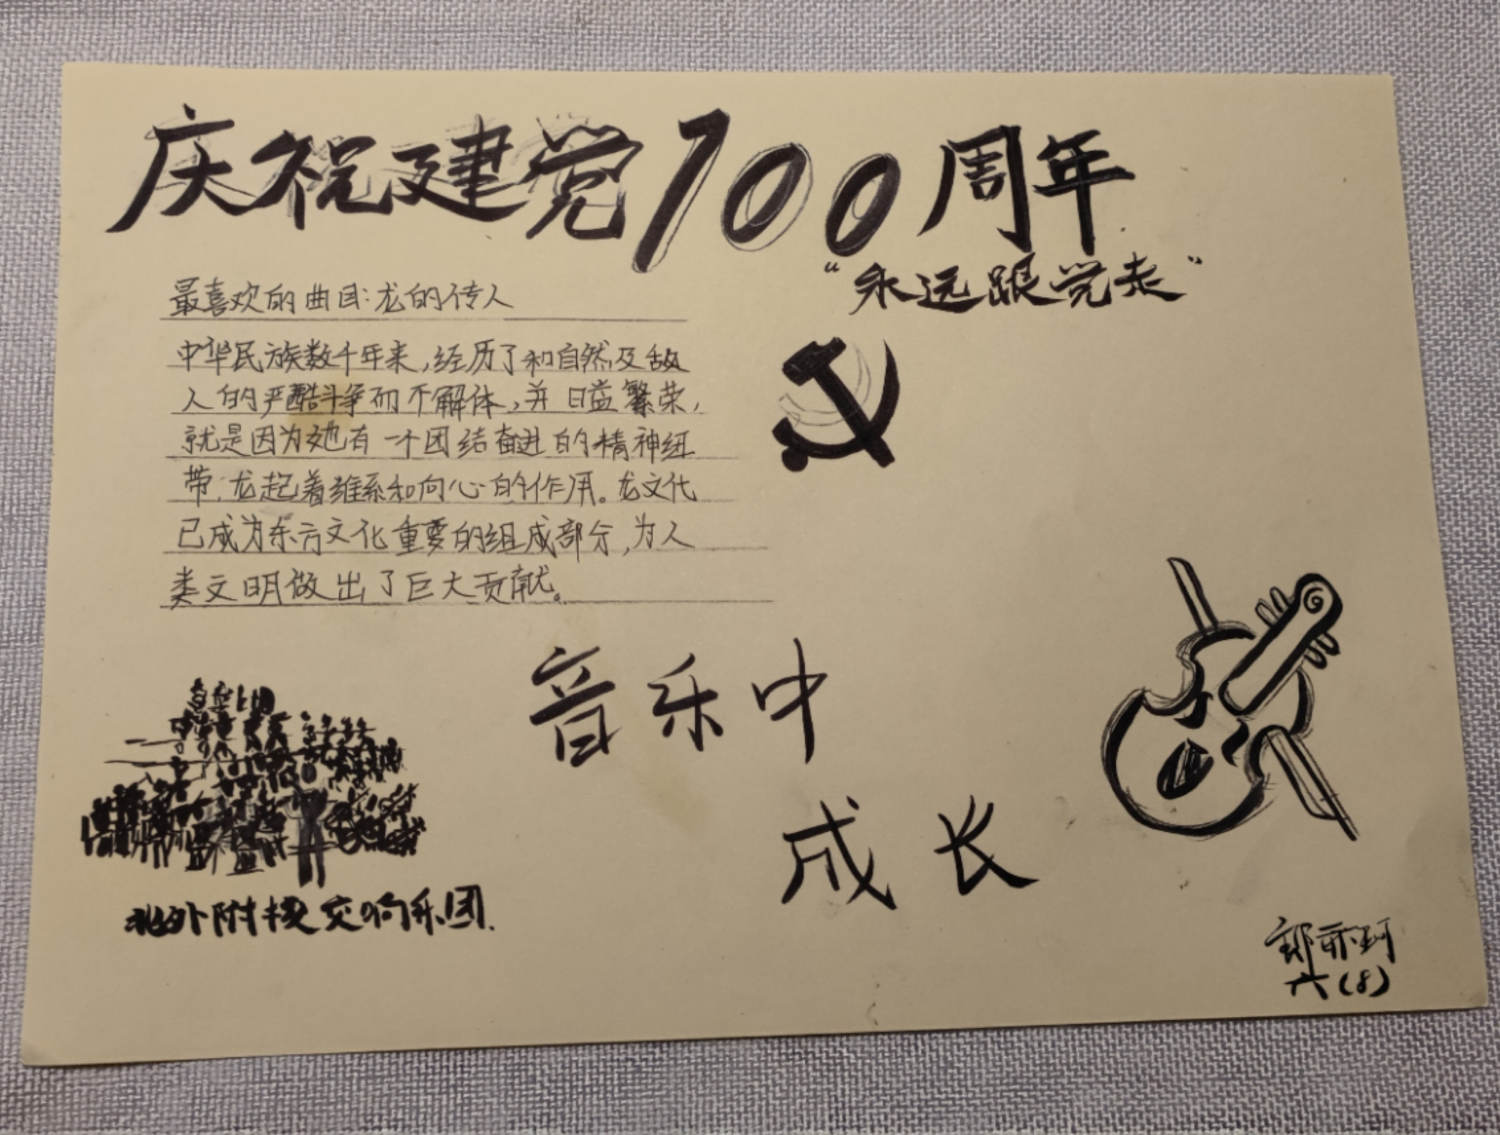 庆祝建党100周年
“永远跟党走”
最喜欢的曲目:龙的传人
中华民族数千年来,经历了和自然及敌
人的严酷斗争而不解体,并日益繁荣,
就是因为她有一个团结奋进的精神纽
带,龙起着维系和向心的作用。龙文化
已成为东方文化重要的组成部分,为人
类文明做出了巨大贡献。
音乐中
成长
北外附校交响乐团.
郭亦珂
六(8)